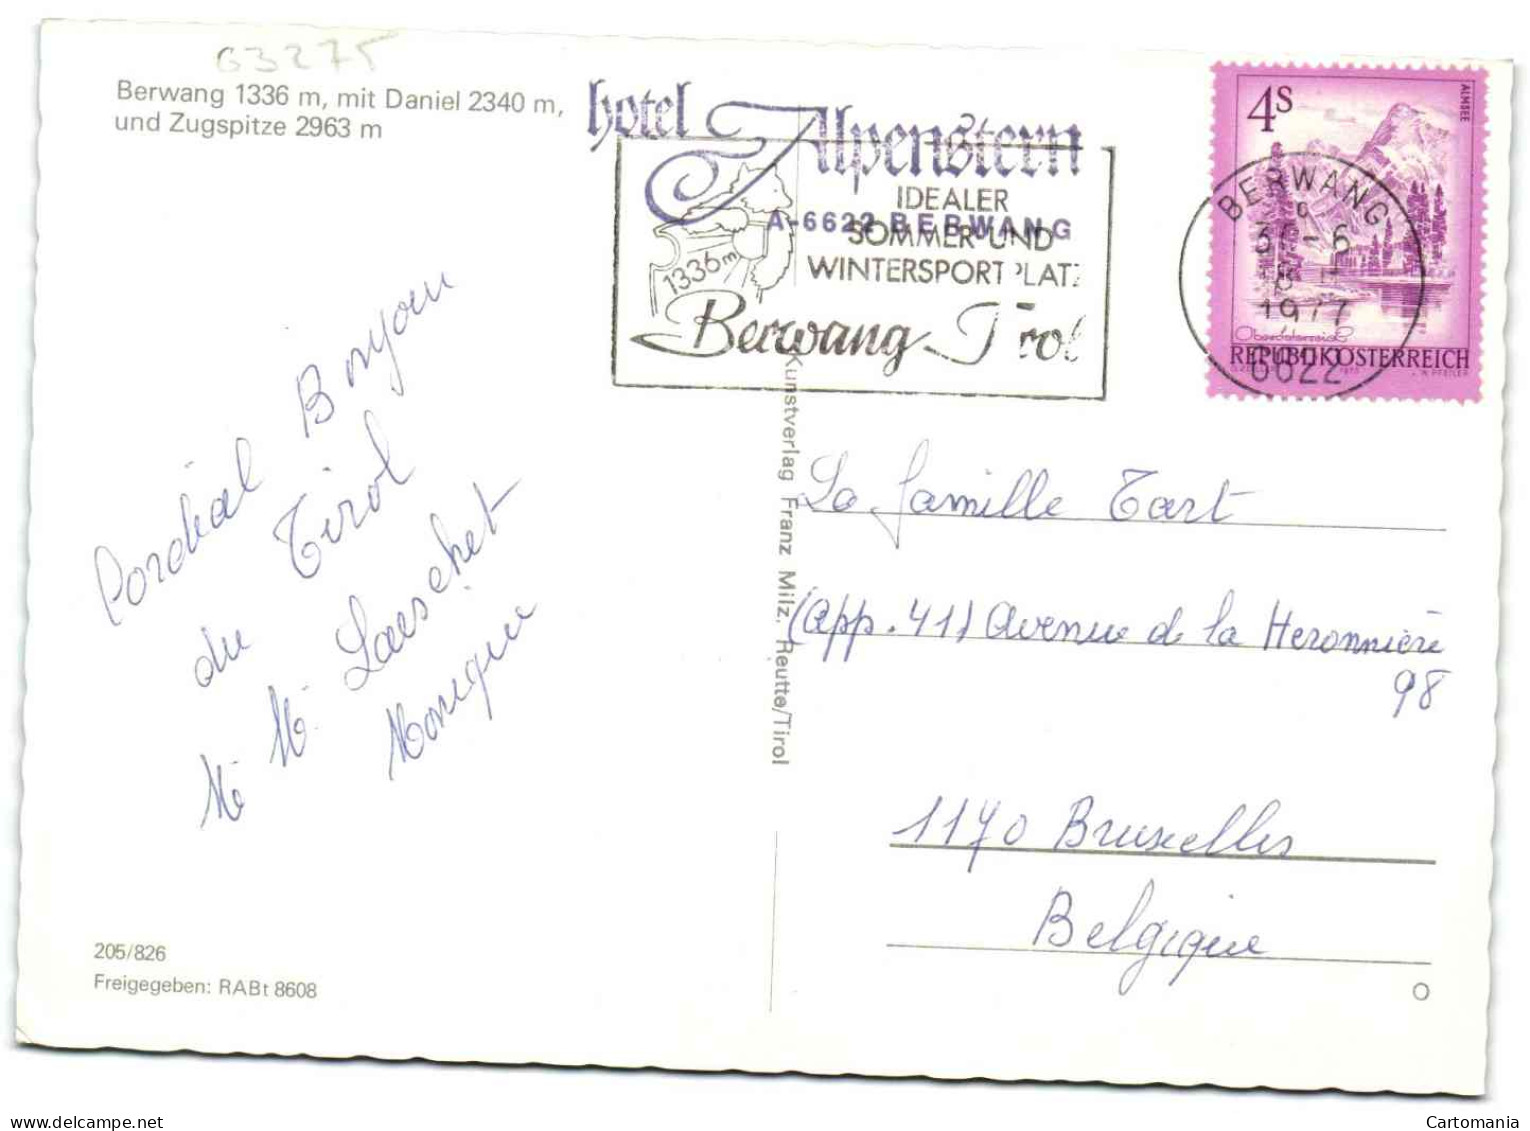 63275
Berwang 1336 m, mit Daniel 2340 m,
und Zugspitze 2963 m
hotel Alpenstern
A-6622 BERWANG
IDEALER
SOMMER-UND
WINTERSPORTPLATZ
1336m
Berwang Tirol
4S
ALMSEE
Oberösterreich
REPUBLIK ÖSTERREICH
BERWANG
30-6
1977
6622
Cordial Bonjour
du Tirol
M. M. Laeschet
Monique
Kunstverlag Franz Milz, Reutte/Tirol
La famille Tart
(app. 41) Avenue de la Heronnière
98
1170 Bruxelles
Belgique
205/826
Freigegeben: RABt 8608
www.delcampe.net
Cartomania